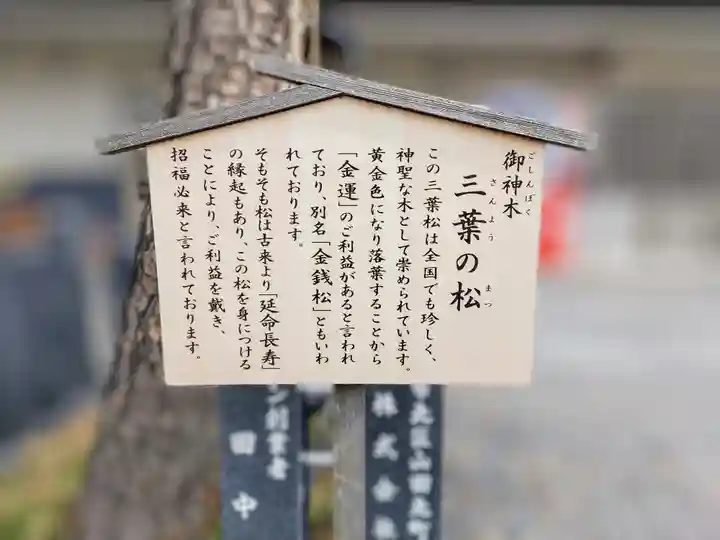 御神木
ごしんぼく
三葉の松
さんよう まつ
この三葉松は全国でも珍しく、
神聖な木として崇められています。
黄金色になり落葉することから
「金運」のご利益があると言われ
ており、別名「金銭松」ともいわ
れております。
そもそも松は古来より「延命長寿」
の縁起もあり、この松を身につける
ことにより、ご利益を戴き、
招福必来と言われております。
株式会社
ン創業者
田中